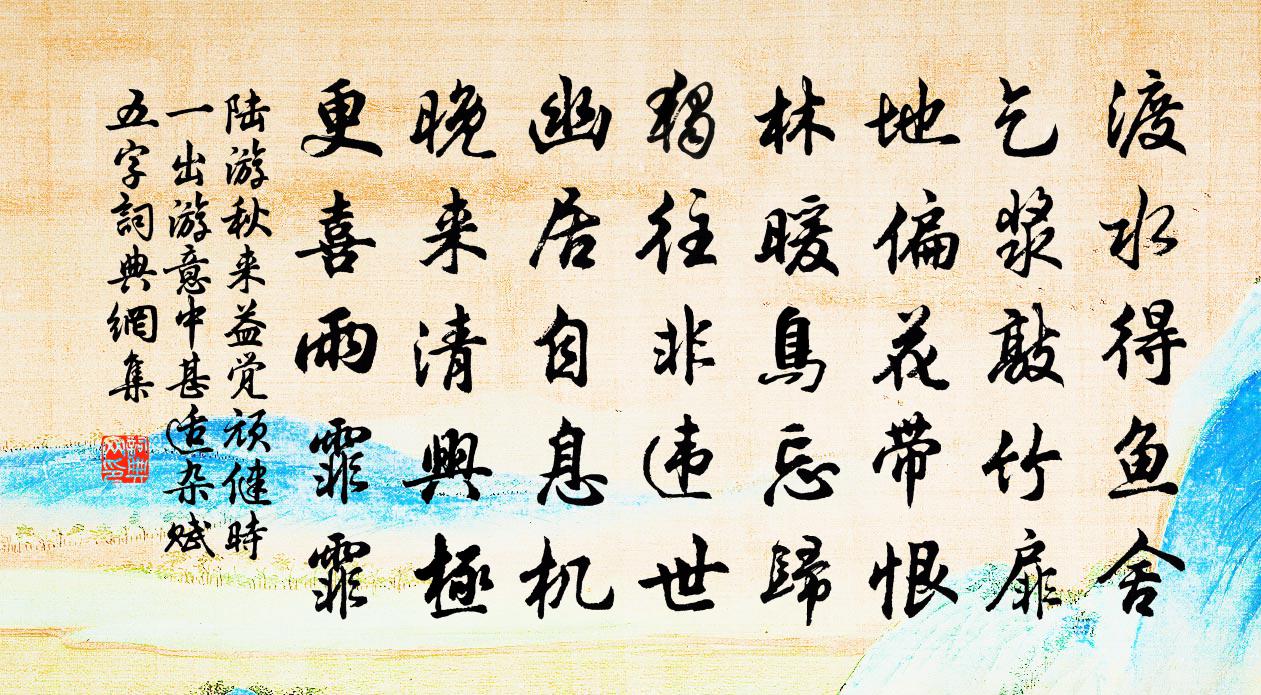 渡水得魚舍
乞漿敲竹扉
地偏花带恨
林暖鳥忘歸
獨往非违世
幽居自息机
晚来清興極
更喜雨霏霏
陆游秋来益觉顽健時
一出游意中甚适杂赋
五字詞典網集